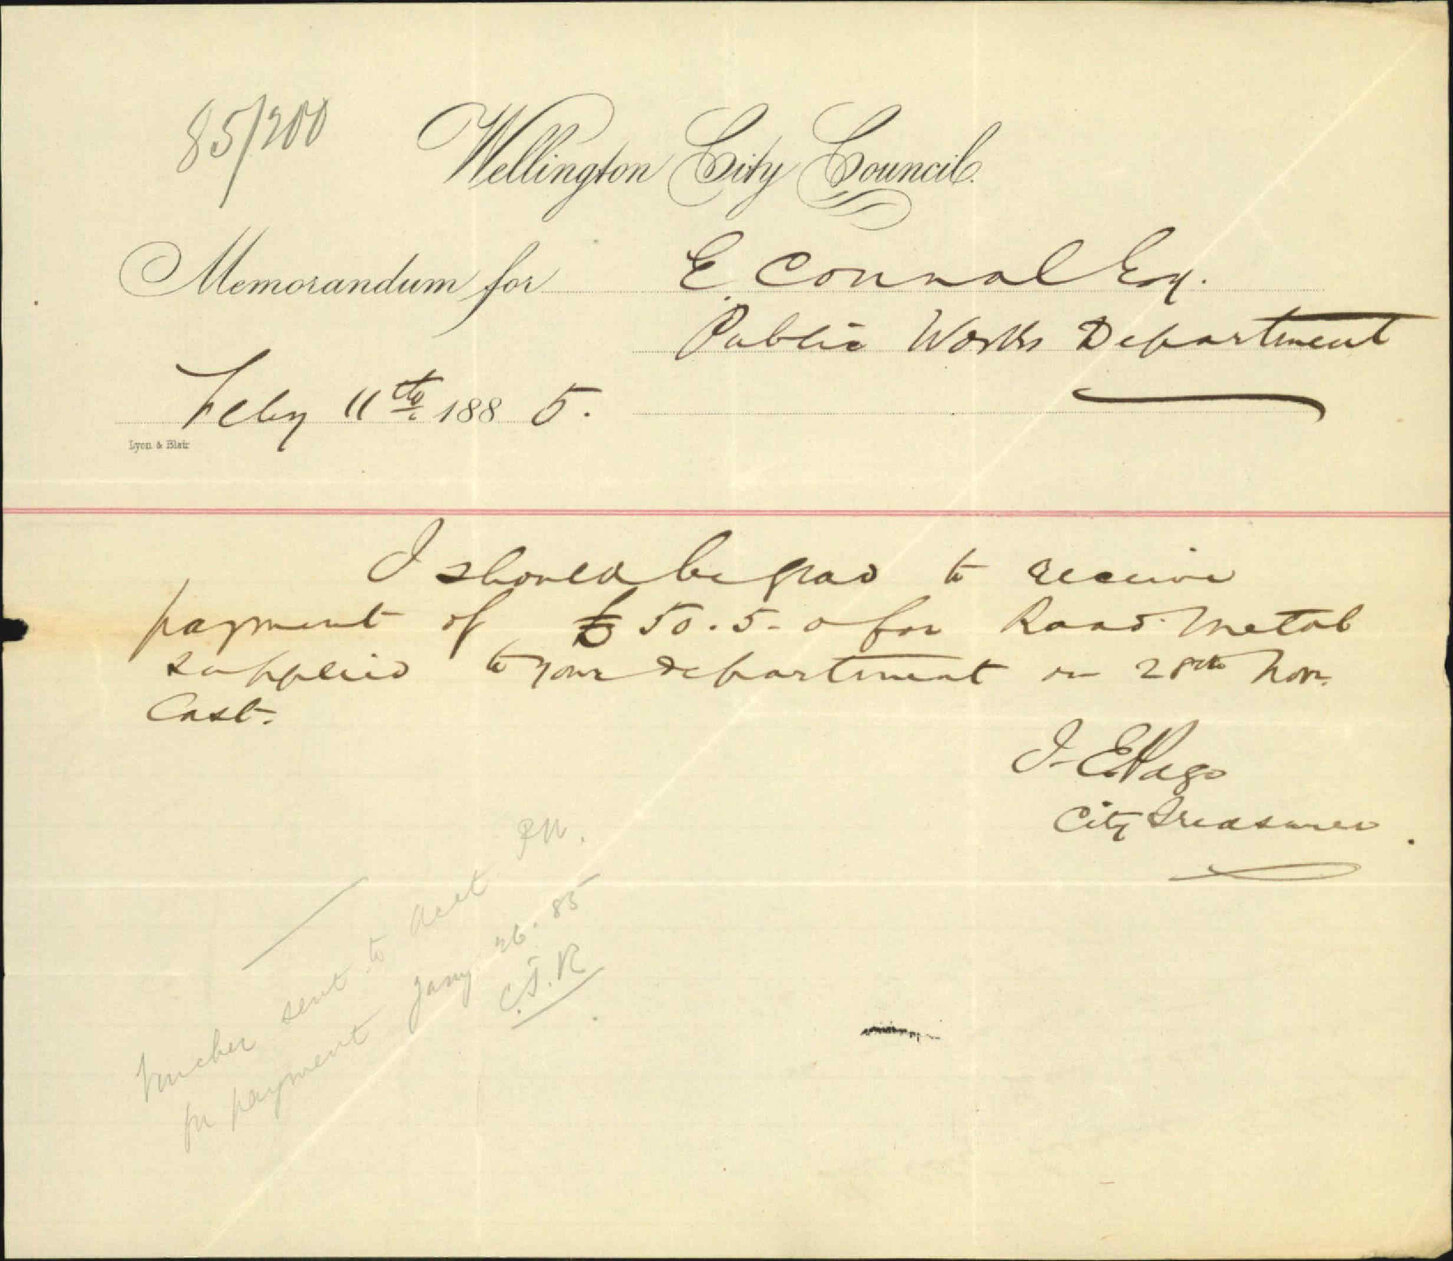 85/200
Wellington City Council.
Memorandum for E Connal Esq.
Public Works Department
Feby 11th 1885.
Lyon & Blair
I should be glad to receive
payment of £50.5.0 for Road Metal
supplied to your department on 28th Nov.
last.
J. E. Page
City Treasurer.
Voucher sent to Acct PW.
for payment Jany 26. 85
C.T.R